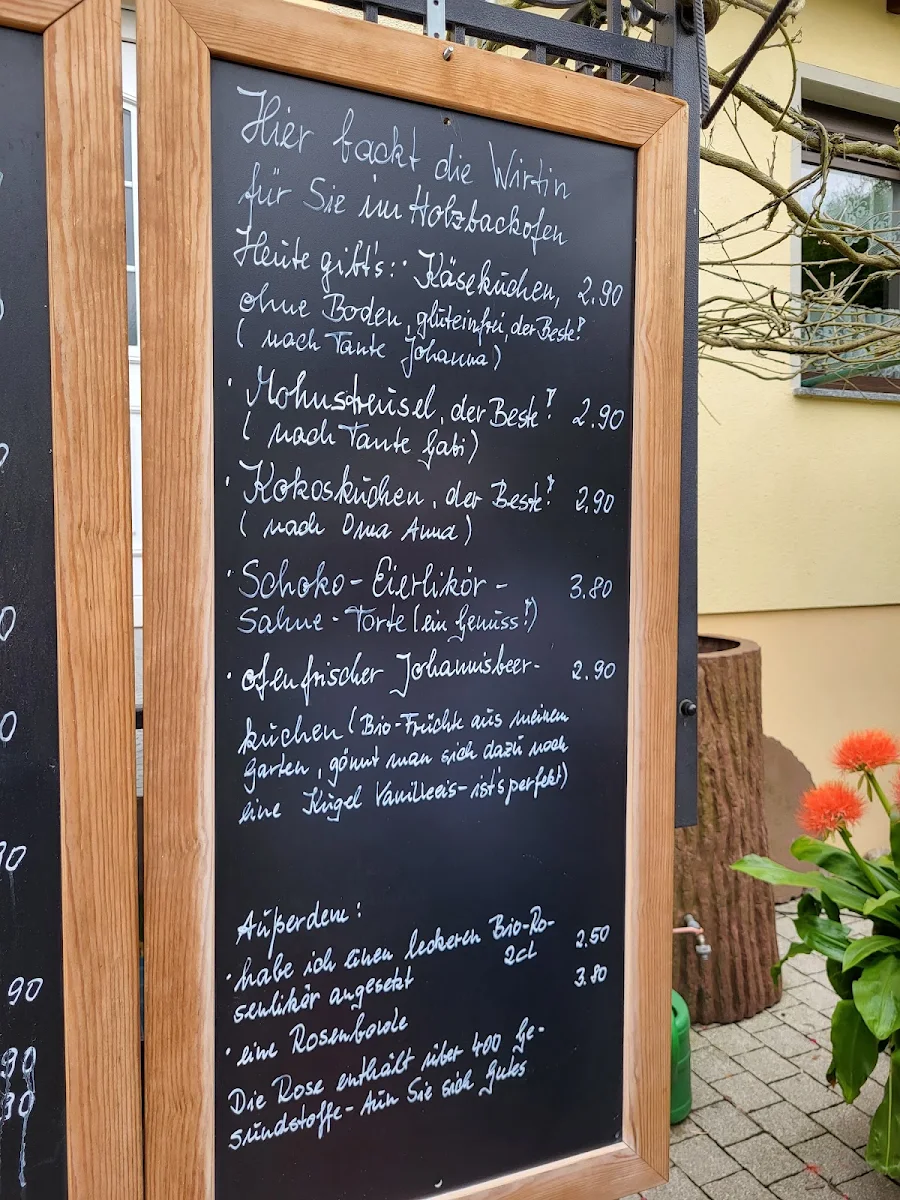 Hier backt die Wirtin
für Sie im Holzbackofen
Heute gibt's: Käsekuchen, 2.90
ohne Boden, gluteinfrei, der Beste!
(nach Tante Johanna)
· Mohnstreusel, der Beste! 2.90
(nach Tante Gabi)
· Kokoskuchen, der Beste! 2.90
(nach Oma Anna)
· Schoko-Eierlikör- 3.80
Sahne-Torte (ein Genuss!)
· ofenfrischer Johannisbeer- 2.90
kuchen (Bio-Früchte aus meinem
Garten, gönnt man sich dazu noch
eine Kugel Vanilleeis - ist's perfekt)
Außerdem:
· habe ich einen leckeren Bio-Ro- 2.50
senlikör angesetzt 2cl 3.80
· eine Rosenbowle
Die Rose enthält über 400 Ge-
sundstoffe - Tun Sie sich Gutes
90